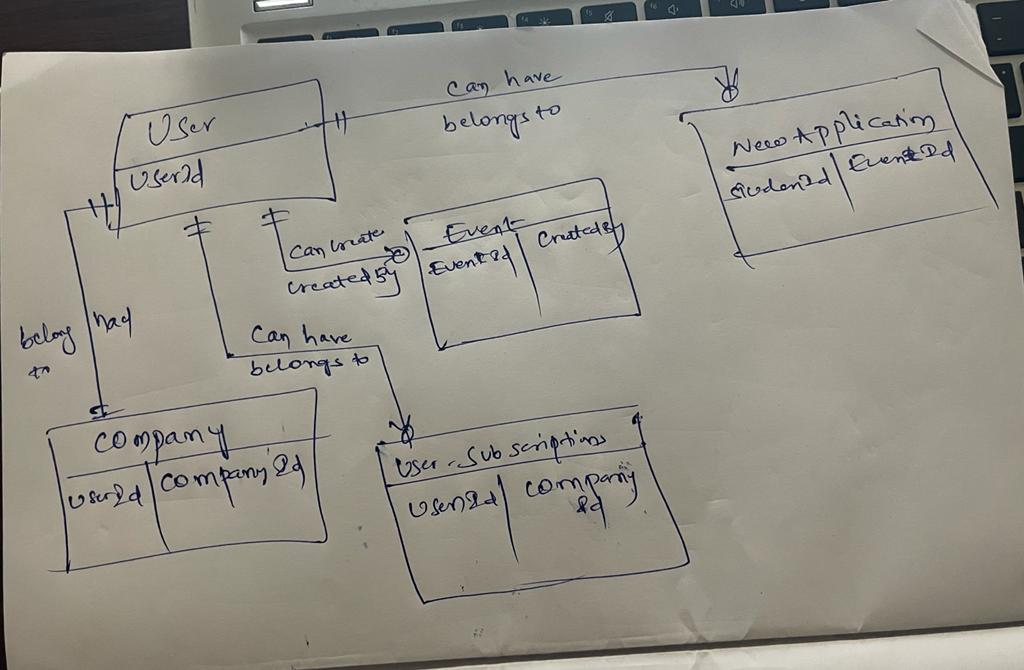 Can have
belongs to
User
UserId
New Application
StudenId
EventId
Can create
Created By
Event
EventId
Created By
belong
to
had
Can have
belongs to
Company
UserId
Company Id
User - Subscriptions
UserId
Company
Id